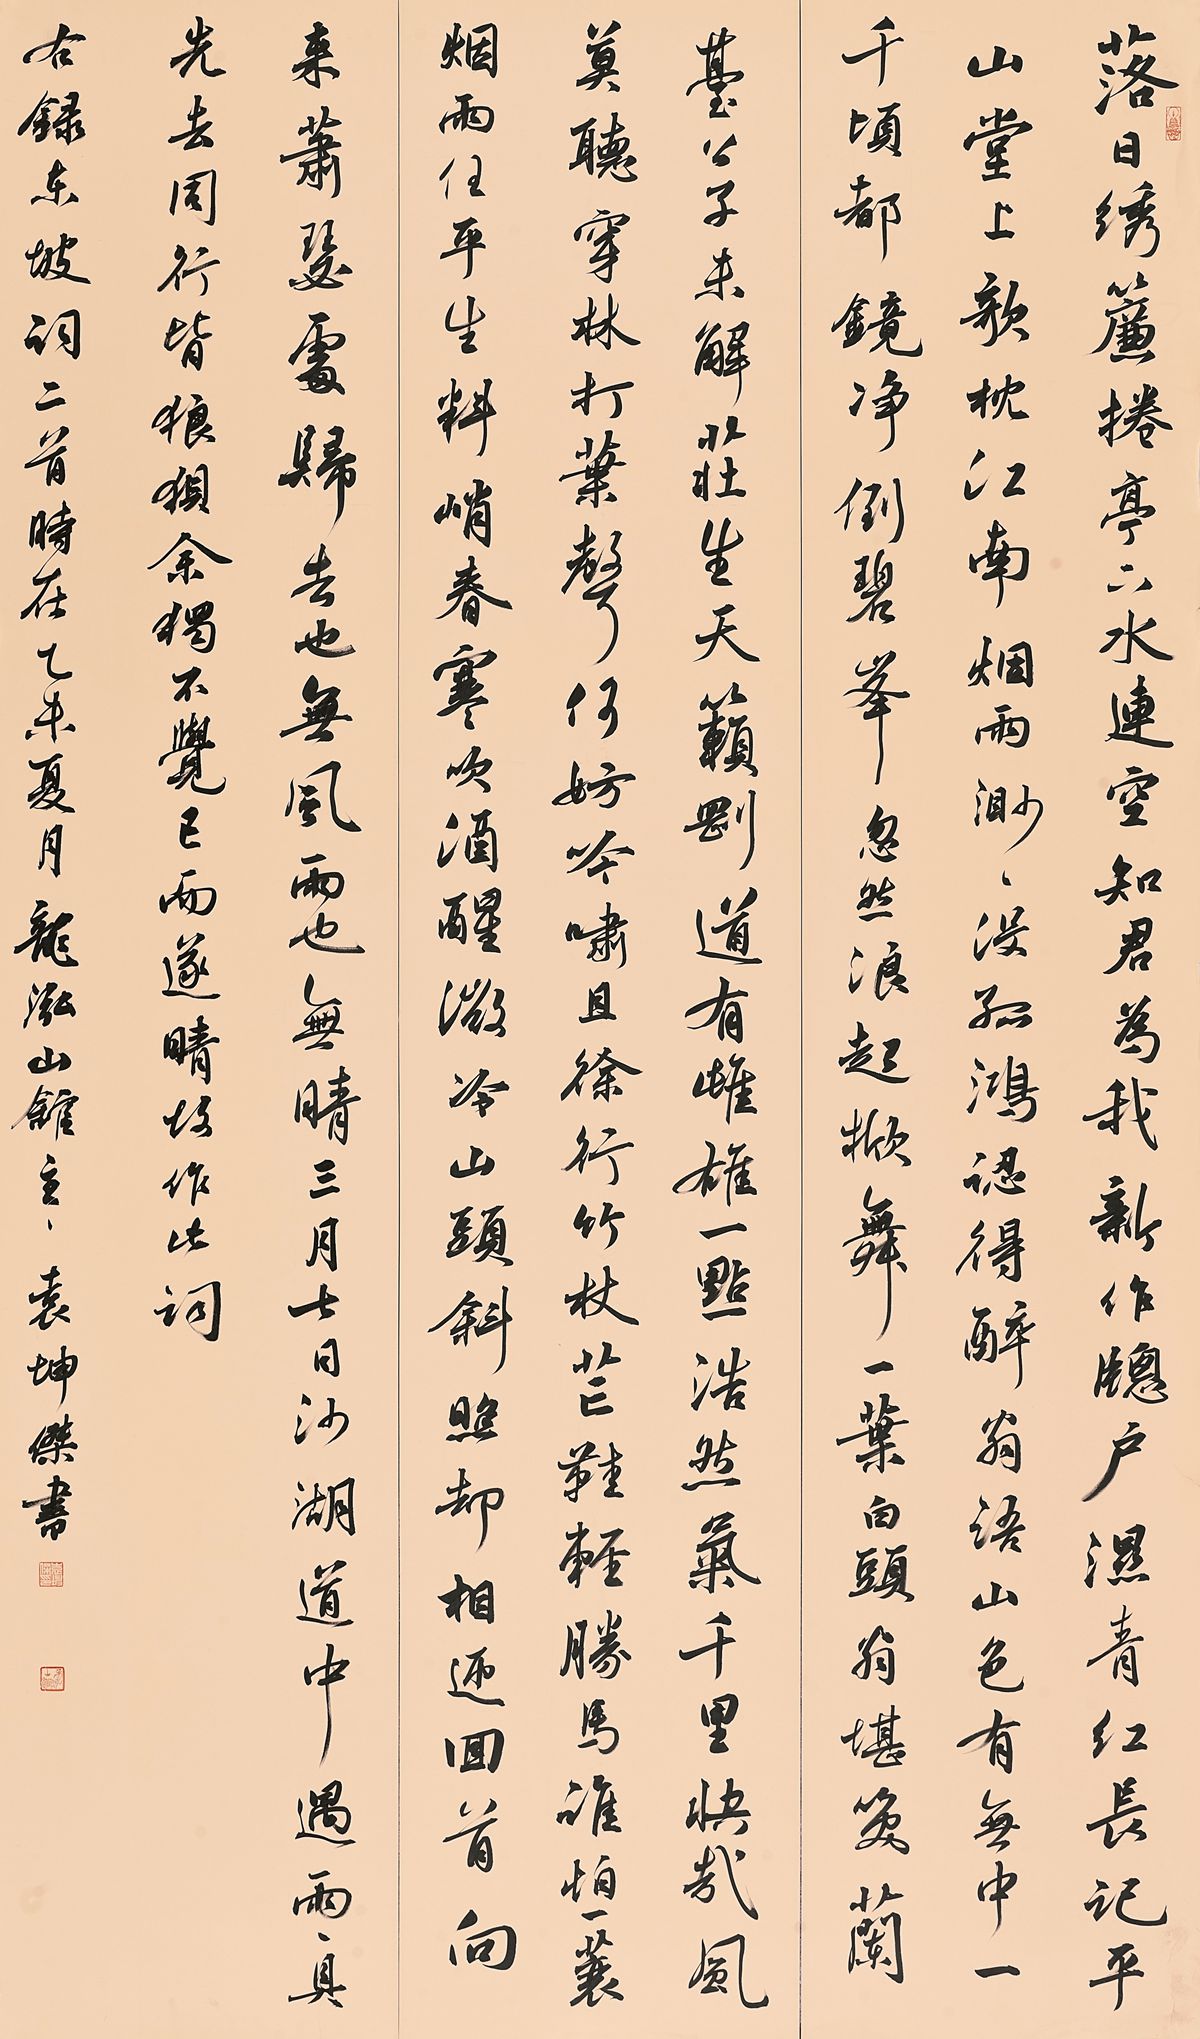 落日绣簾捲亭下水連空知君為我新作牕户濕青红長記平
山堂上欹枕江南烟雨渺、没孤鴻認得醉翁語山色有無中一
千頃都鏡净倒碧峯忽然浪起掀舞一葉白頭翁堪笑蘭
臺公子未解莊生天籟剛道有雌雄一點浩然氣千里快哉風
莫聽穿林打葉聲何妨吟嘯且徐行竹杖芒鞋輕勝馬誰怕一蓑
烟雨任平生料峭春寒吹酒醒微冷山頭斜照却相迎回首向
来蕭瑟處歸去也無風雨也無晴三月七日沙湖道中遇雨、具
先去同行皆狼狽余獨不覺已而遂晴故作此詞
右録东坡詞二首時在乙未夏月龍泓山館主、袁坤傑書